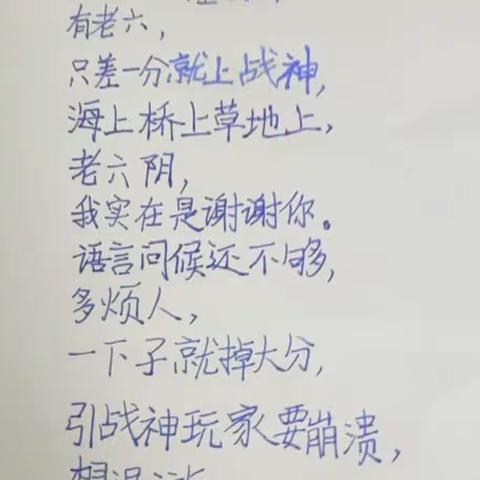 有老六，
只差一分就上战神，
海上桥上草地上，
老六阴，
我实在是谢谢你。
语言问候还不够，
多烦人，
一下子就掉大分，
引战神玩家要崩溃，